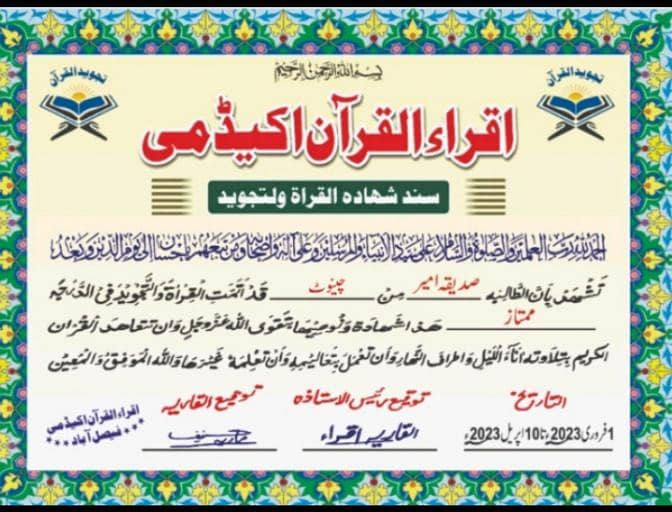 بسم الله الرحمن الرحيم
تجوید القرآن
تجوید القرآن
اقراء القرآن اکیڈمی
سند شهاده القراة ولتجوید
الحمد لله رب العلمين والصلوة والسلام على سيد الانبياء والمرسلين وعلى آله واصحابه ومن تبعهم باحسان الى يوم الدين وبعد
تشهد بان الطالبہ صدیقہ امیر من چنیوٹ قد اتمت القراة والتجويد في الدرجہ
ممتاز هذا شهادة ونوصيها بتقوى الله عزوجل وان تتعاهد القران
الكريم بتلاوته اناء الليل واطراف النهار وان تعمل بتعاليمه وان تعلمه غيرها والله الموفق والمعين
التاریخ
توقیع رئیس الاستاذہ
توقیع القاریہ
1فروری2023ء تا10 اپریل2023ء
القاریہ اقراء
اقراء القرآن اکیڈمی
فیصل آباد